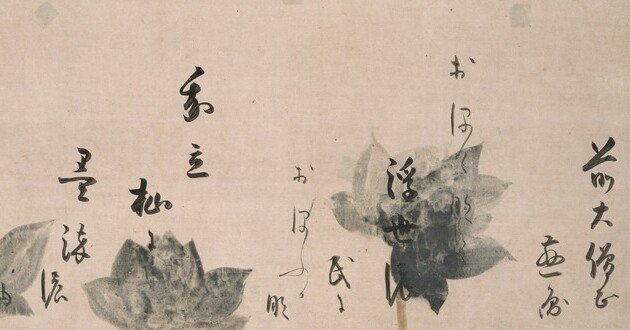 前大僧正
慈圓
おほけなく
浮世濃
民に
おほふか
那
我立
杣に
墨染
濃